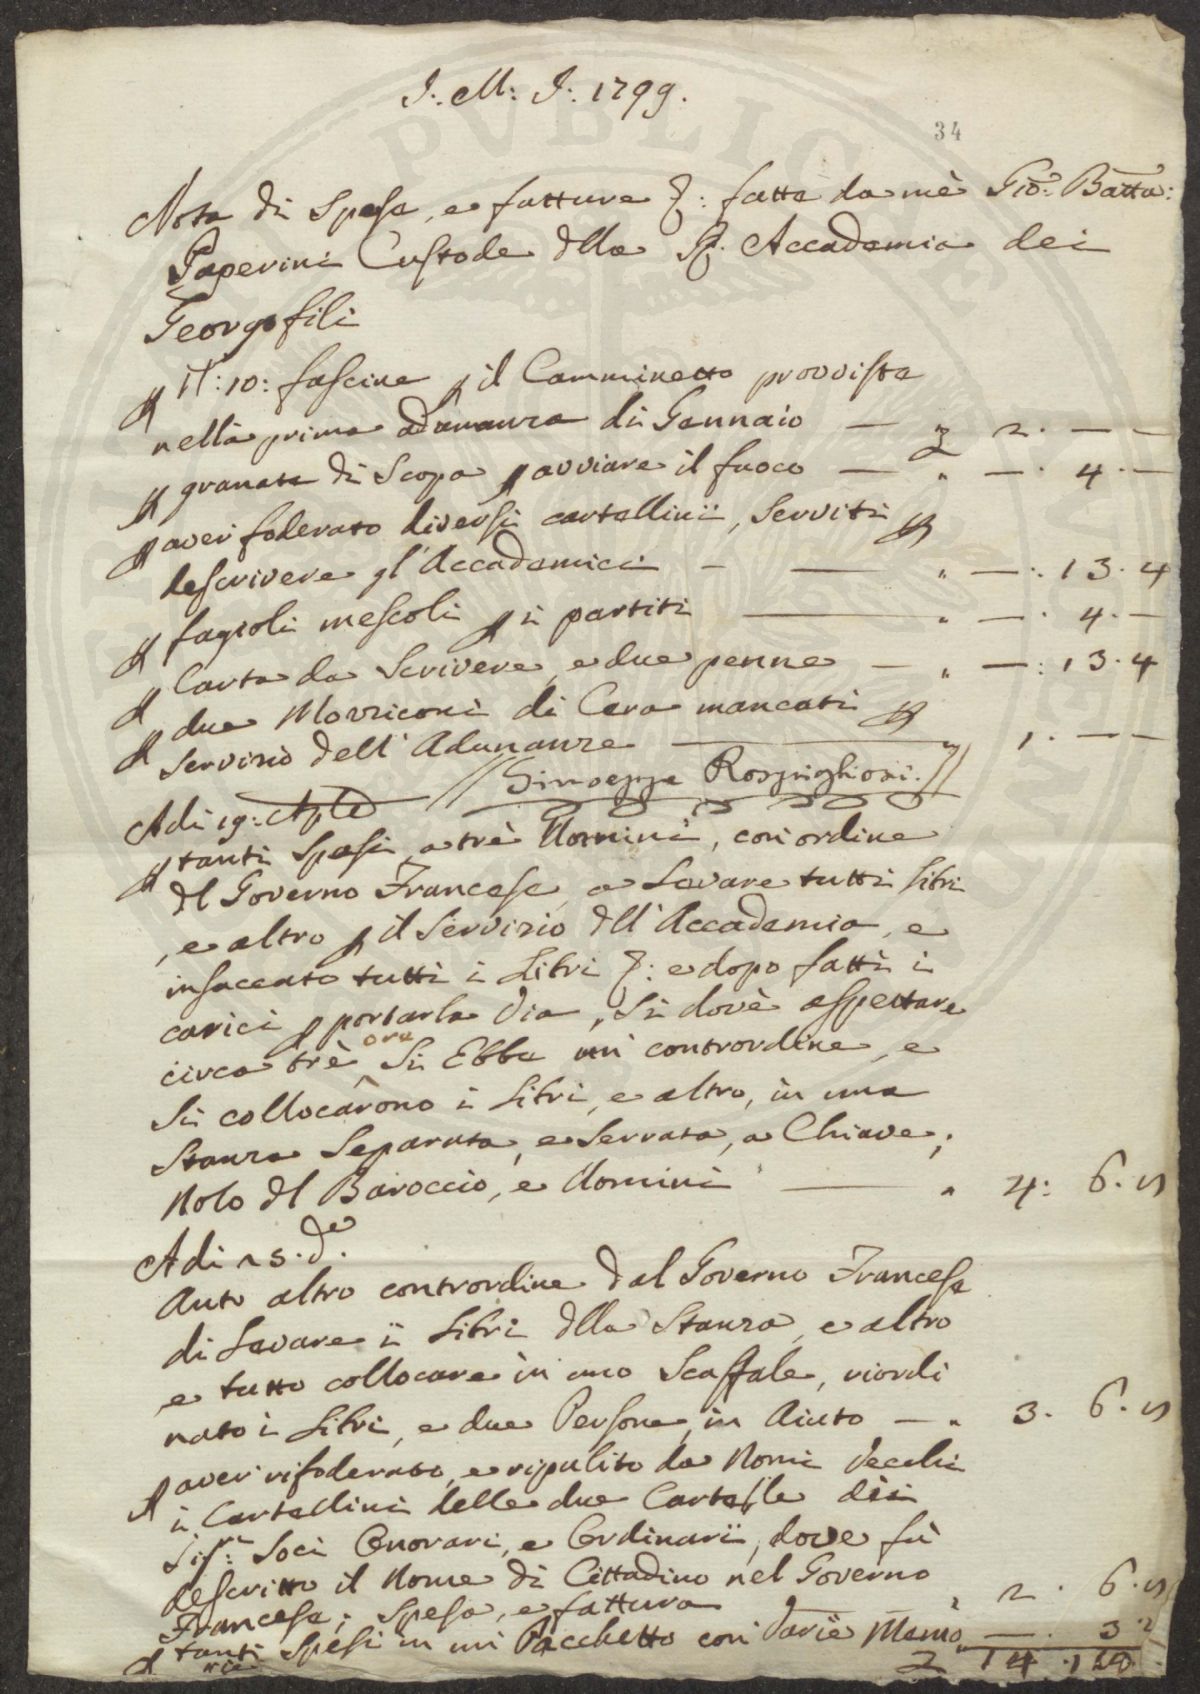 J: M: J: 1799.
34
Nota di Spese, e fatture &: fatte da mè Gio: Batta:
Paperini Custode dlla Accademia dei
Georgofili
p n: 10: fascine p il Camminetto provviste
nella prima adunanza di Gennaio — 2. — —
p granate di Scopa p avviare il fuoco — " — . 4. —
p aver foderato diversi cartellini, serviti p
descrivere gl'Accademici — " — : 13. 4
p fagioli mescoli p i partiti — " — . 4. —
p Carta da Scrivere, e due penne — " — : 13. 4
p due Mozziconi di Cera mancati p
servizio dell'Adunanze — " 1. — —
Adi 19: Aple // Rospigliosi. //
p tanti Spesi a trè Uomini, con ordine
dl Governo Francese a Levare tutti libri
, e altro p il servizio dll'Accademia, e
insaccato tutti i Libri &: e dopo fatti i
carici p portarla via, Si dovè aspettare
circa trè ore Si Ebbe un contrordine, e
Si collocarono i Libri, e altro, in una
Stanza Separata, e Serrata, a Chiave;
Nolo dl Baroccio, e Uomini — " 4: 6.
Adi 25. do.
Auto altro contrordine dal Governo Francese
di Levare i Libri dlla Stanza, e altro
e tutto collocare in uno Scaffale, riordi
nato i Libri, e due Persone, in Aiuto — " 3. 6.
p aver rifoderato, e ripulito da Nomi Vecchi
i Cartellini delle due Cartelle dei
Sigri: Soci Onorari, e Ordinarii, dove fù
descritto il Nome di Cittadino nel Governo
Francese; Spesa, e fattura — " 2. 6.
p tanti Spesi in un Pacchetto con varie Memo — . 3.
rie 14.